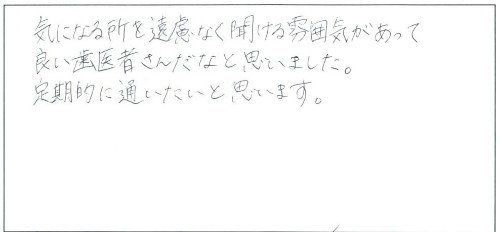 気になる所を遠慮なく聞ける雰囲気があって
良い歯医者さんだなと思いました。
定期的に通いたいと思います。